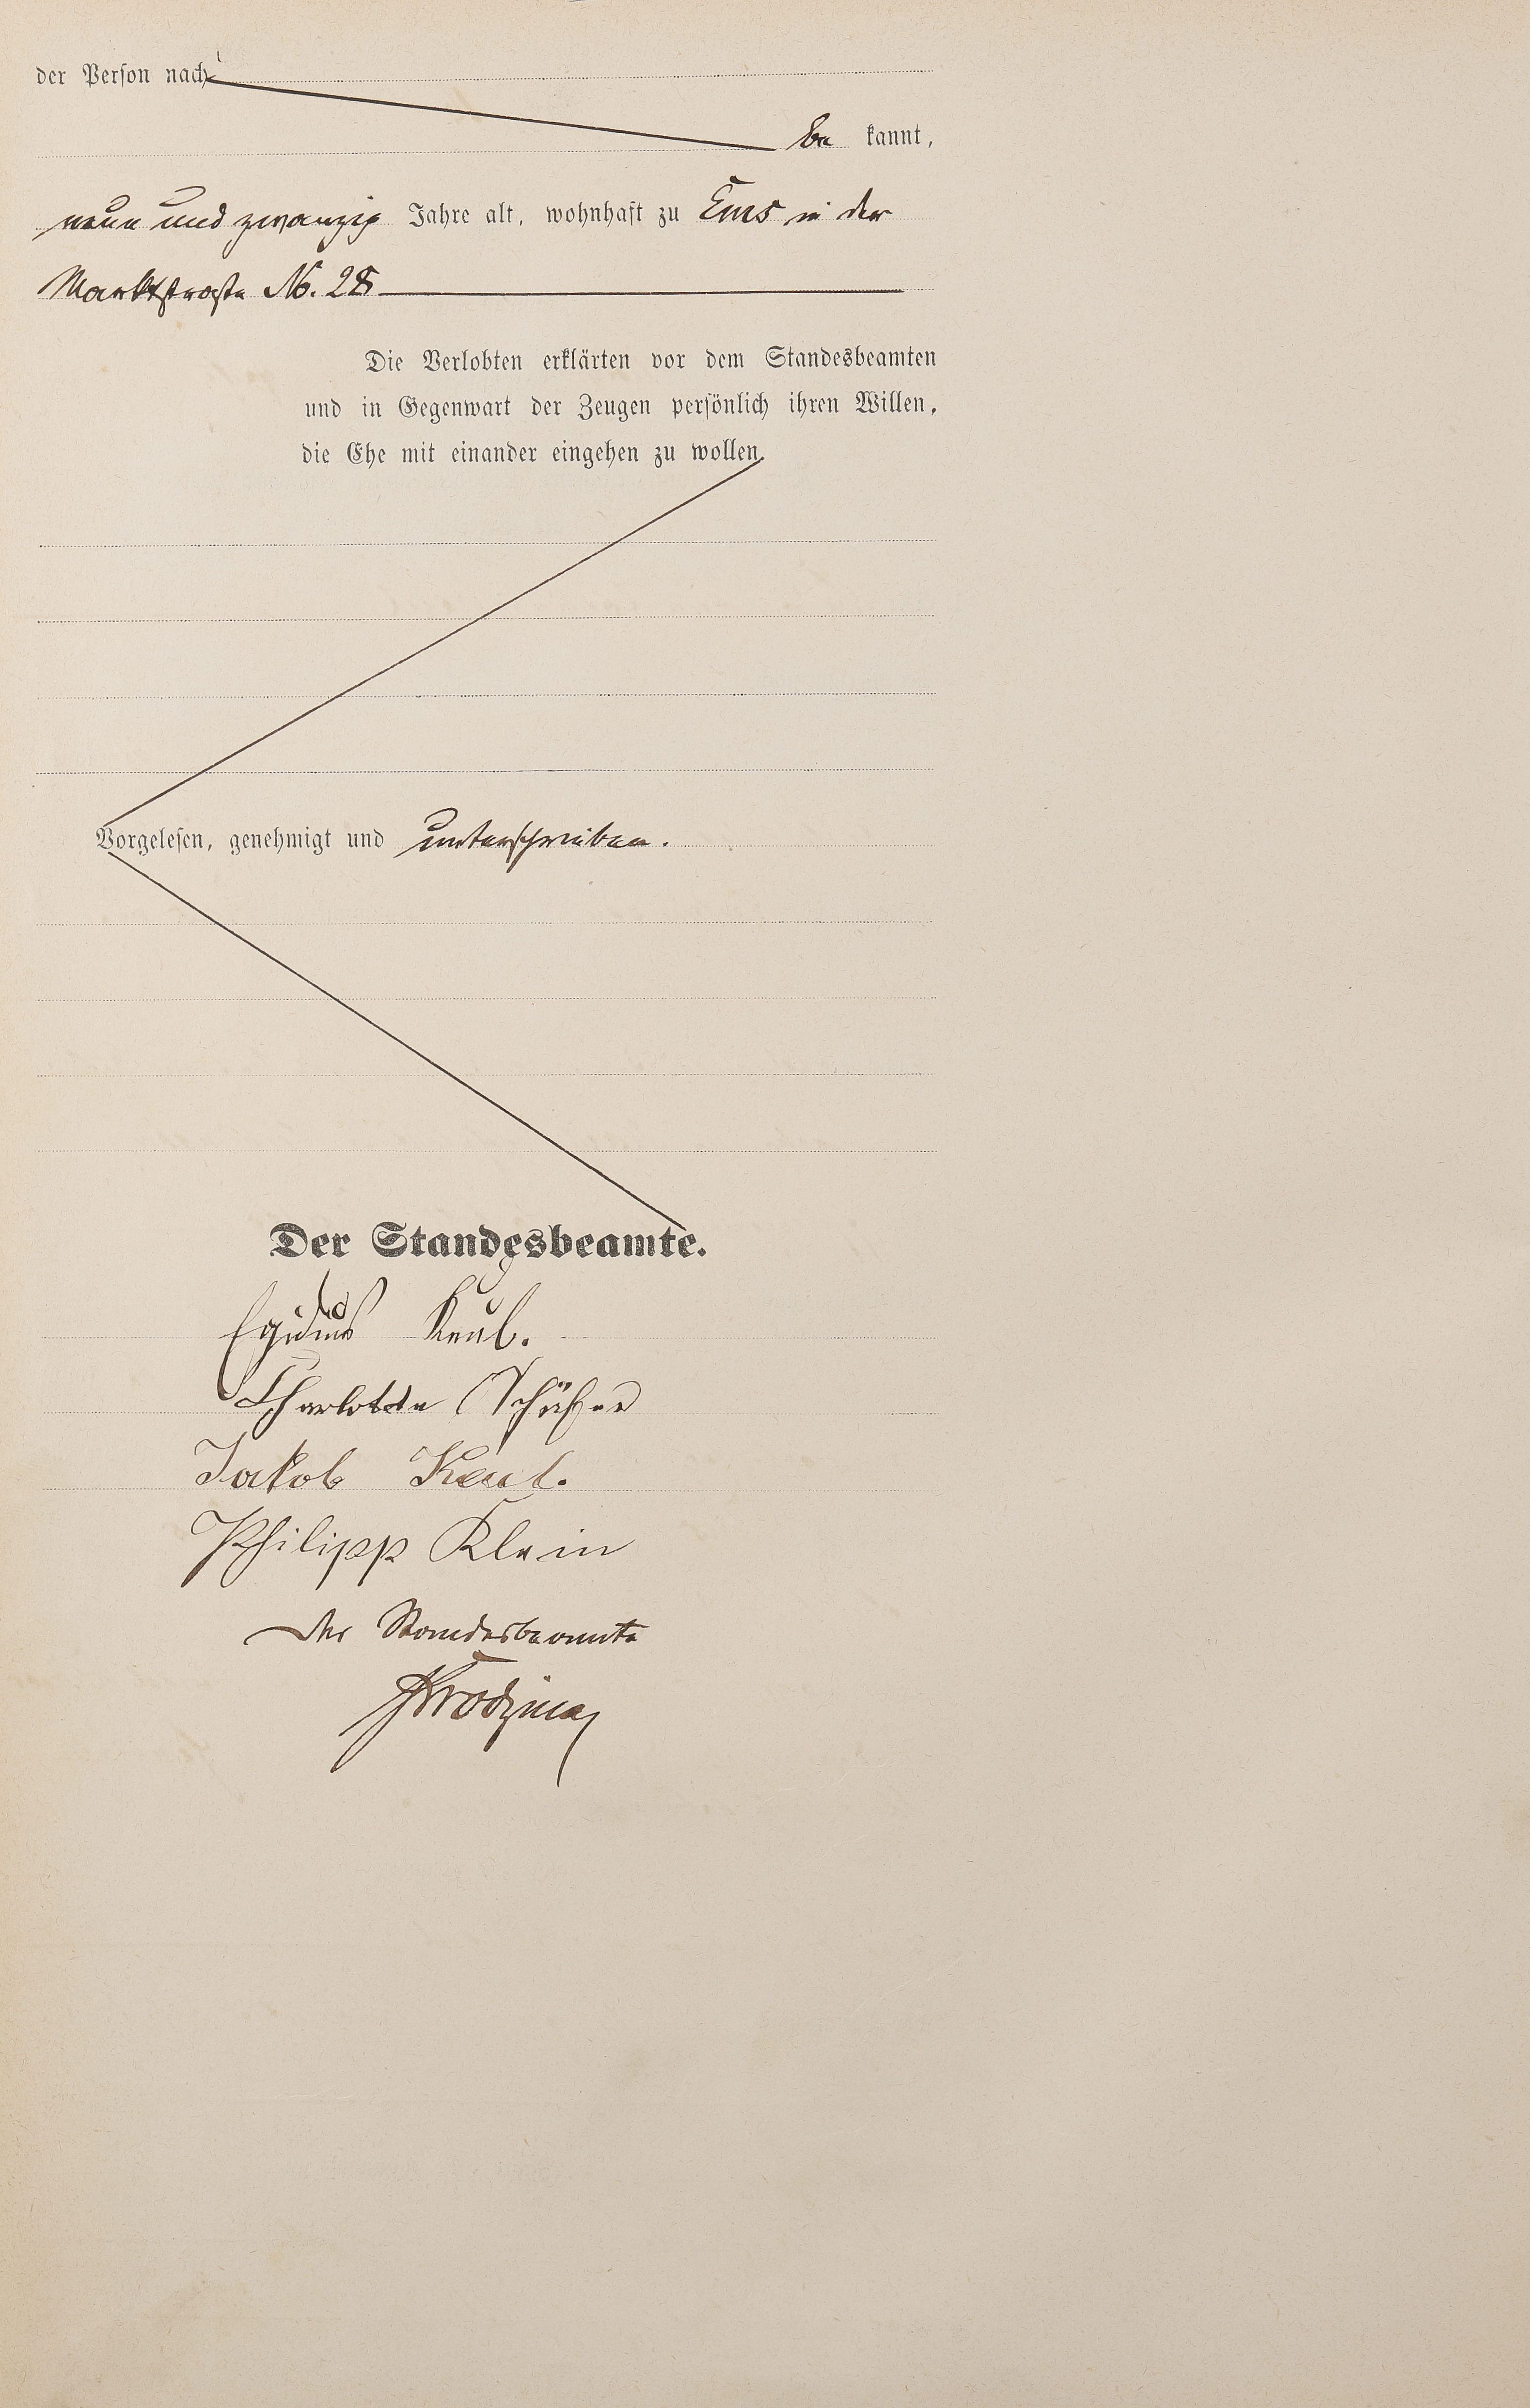 der Person nach
be kannt,
neun und zwanzig Jahre alt, wohnhaft zu Ems in der
Marktstraße No. 28
Die Verlobten erklärten vor dem Standesbeamten
und in Gegenwart der Zeugen persönlich ihren Willen,
die Ehe mit einander eingehen zu wollen.
Vorgelesen, genehmigt und unterschrieben.
Der Standesbeamte.
Egidius
Charlotte Schäfer
Jakob
Philipp Klein
Der Standesbeamte